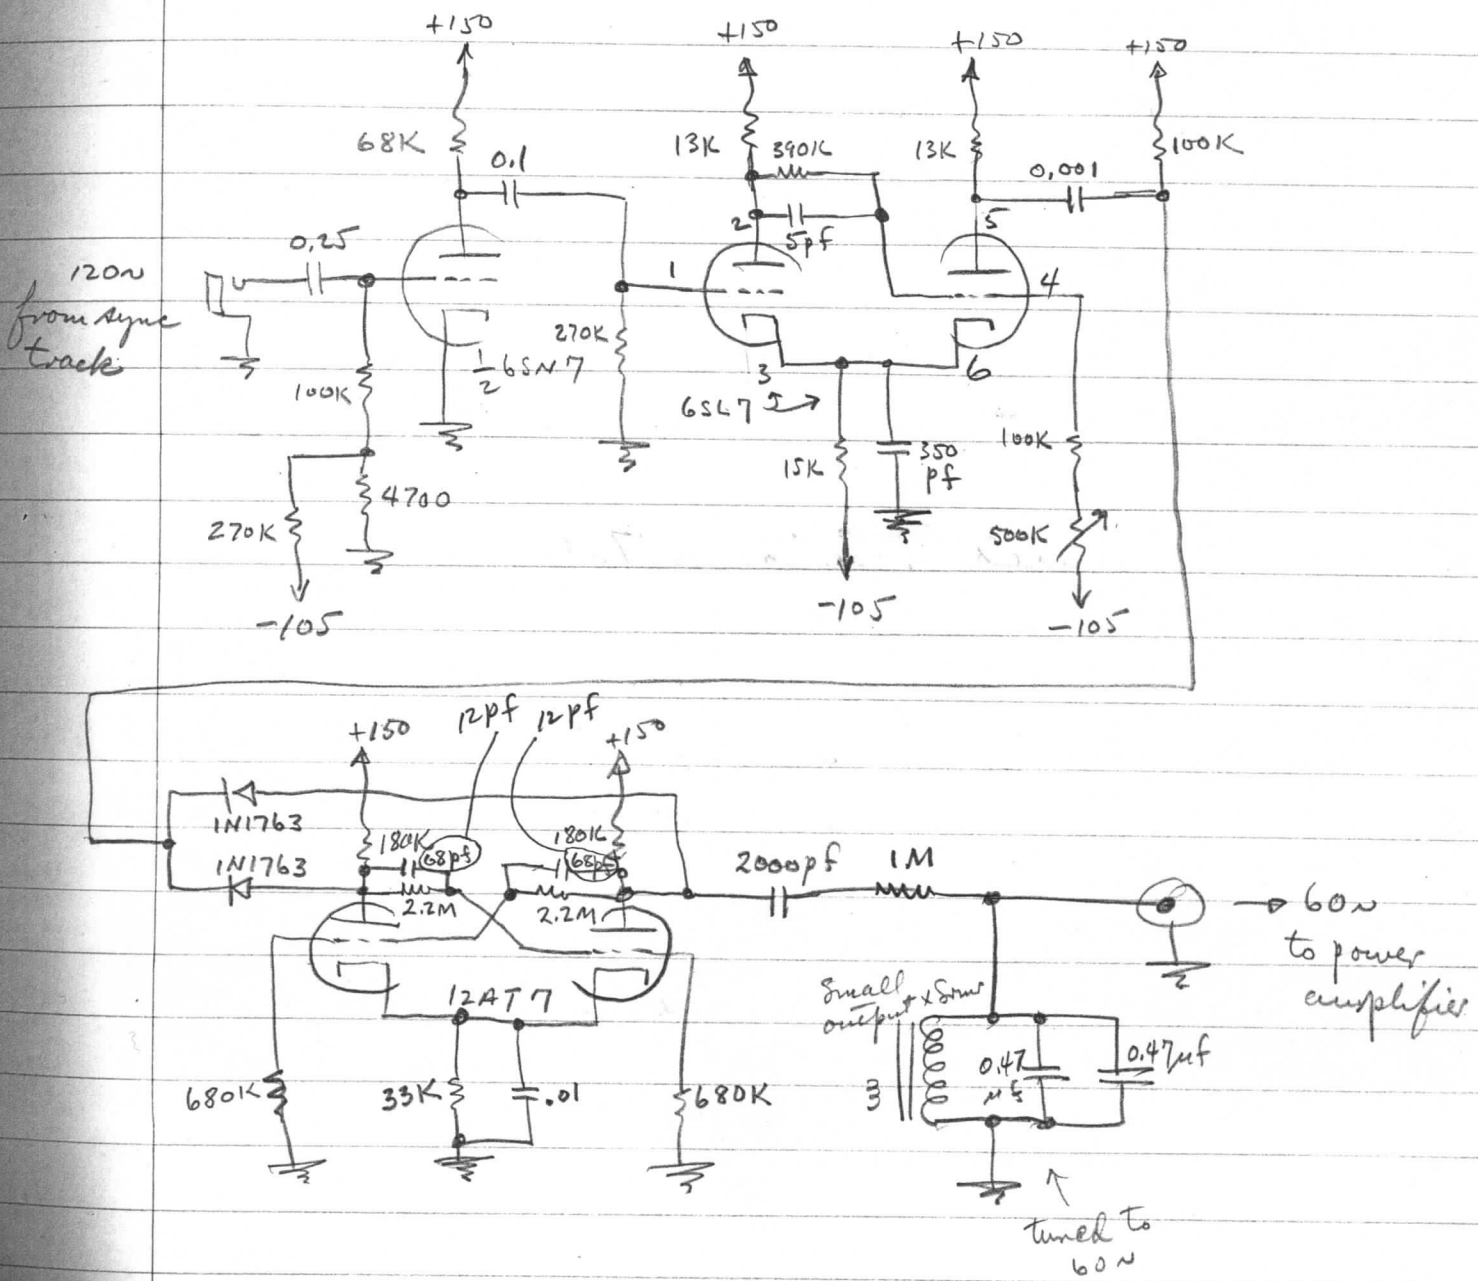 +150
+150
+150
+150
68K
0.1
13K
390K
13K
0.001
100K
2
5pf
5
0.25
120~
from sync
track
1
4
270K
1/2 6SN7
3
6
6SL7
100K
15K
350
pf
100K
4700
270K
500K
-105
-105
-105
12pf
12pf
+150
+150
1N1763
180K
68pf
180K
68pf
1N1763
2.2M
2.2M
2000pf
1M
60~
to power
amplifier
12AT7
small
output
680K
33K
.01
680K
0.47
μf
0.47μf
tuned to
60~